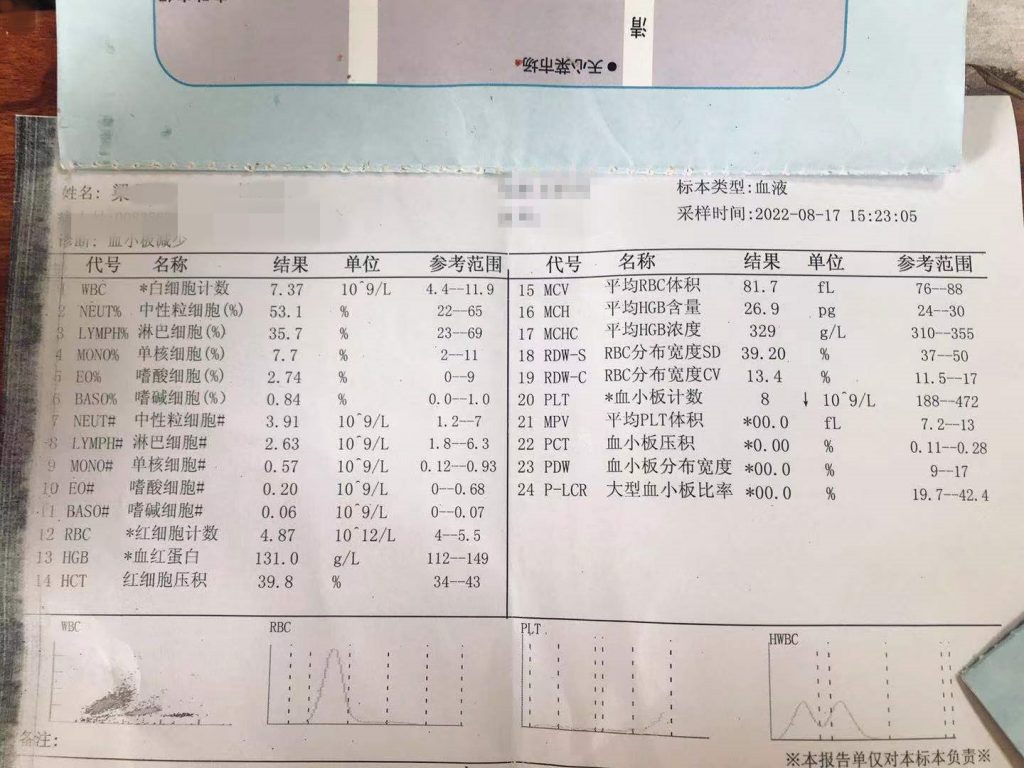 清
天心菜市场
姓名: 梁
标本类型:血液
采样时间:2022-08-17 15:23:05
诊断: 血小板减少
代号 名称 结果 单位 参考范围
1 WBC *白细胞计数 7.37 10^9/L 4.4--11.9
2 NEUT% 中性粒细胞(%) 53.1 % 22--65
3 LYMPH% 淋巴细胞(%) 35.7 % 23--69
4 MONO% 单核细胞(%) 7.7 % 2--11
5 EO% 嗜酸细胞(%) 2.74 % 0--9
6 BASO% 嗜碱细胞(%) 0.84 % 0.0--1.0
7 NEUT# 中性粒细胞# 3.91 10^9/L 1.2--7
8 LYMPH# 淋巴细胞# 2.63 10^9/L 1.8--6.3
9 MONO# 单核细胞# 0.57 10^9/L 0.12--0.93
10 EO# 嗜酸细胞# 0.20 10^9/L 0--0.68
11 BASO# 嗜碱细胞# 0.06 10^9/L 0--0.07
12 RBC *红细胞计数 4.87 10^12/L 4--5.5
13 HGB *血红蛋白 131.0 g/L 112--149
14 HCT 红细胞压积 39.8 % 34--43
代号 名称 结果 单位 参考范围
15 MCV 平均RBC体积 81.7 fL 76--88
16 MCH 平均HGB含量 26.9 pg 24--30
17 MCHC 平均HGB浓度 329 g/L 310--355
18 RDW-S RBC分布宽度SD 39.20 % 37--50
19 RDW-C RBC分布宽度CV 13.4 % 11.5--17
20 PLT *血小板计数 8 ↓ 10^9/L 188--472
21 MPV 平均PLT体积 *00.0 fL 7.2--13
22 PCT 血小板压积 *0.00 % 0.11--0.28
23 PDW 血小板分布宽度 *00.0 % 9--17
24 P-LCR 大型血小板比率 *00.0 % 19.7--42.4
WBC RBC PLT HWBC
备注:
※本报告单仅对本标本负责※